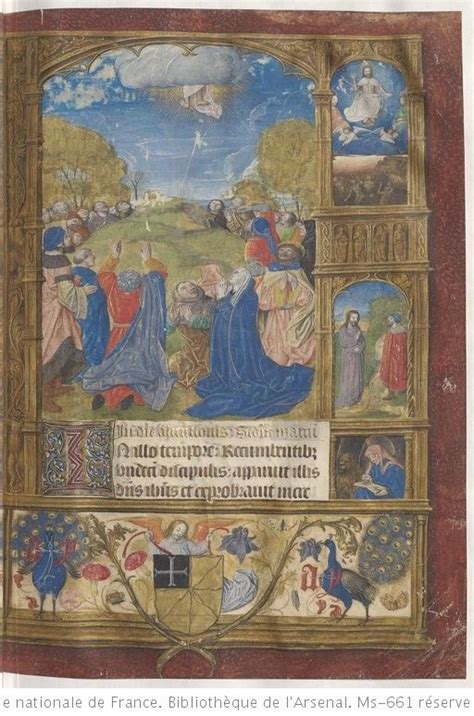 In die ascensionis Scdm
IN illo tempore: Recumbentibz
vndeci discipulis: apparuit illis
dns ihus et exprobrauit incre
e nationale de France. Bibliothèque de l'Arsenal. Ms-661 réserve